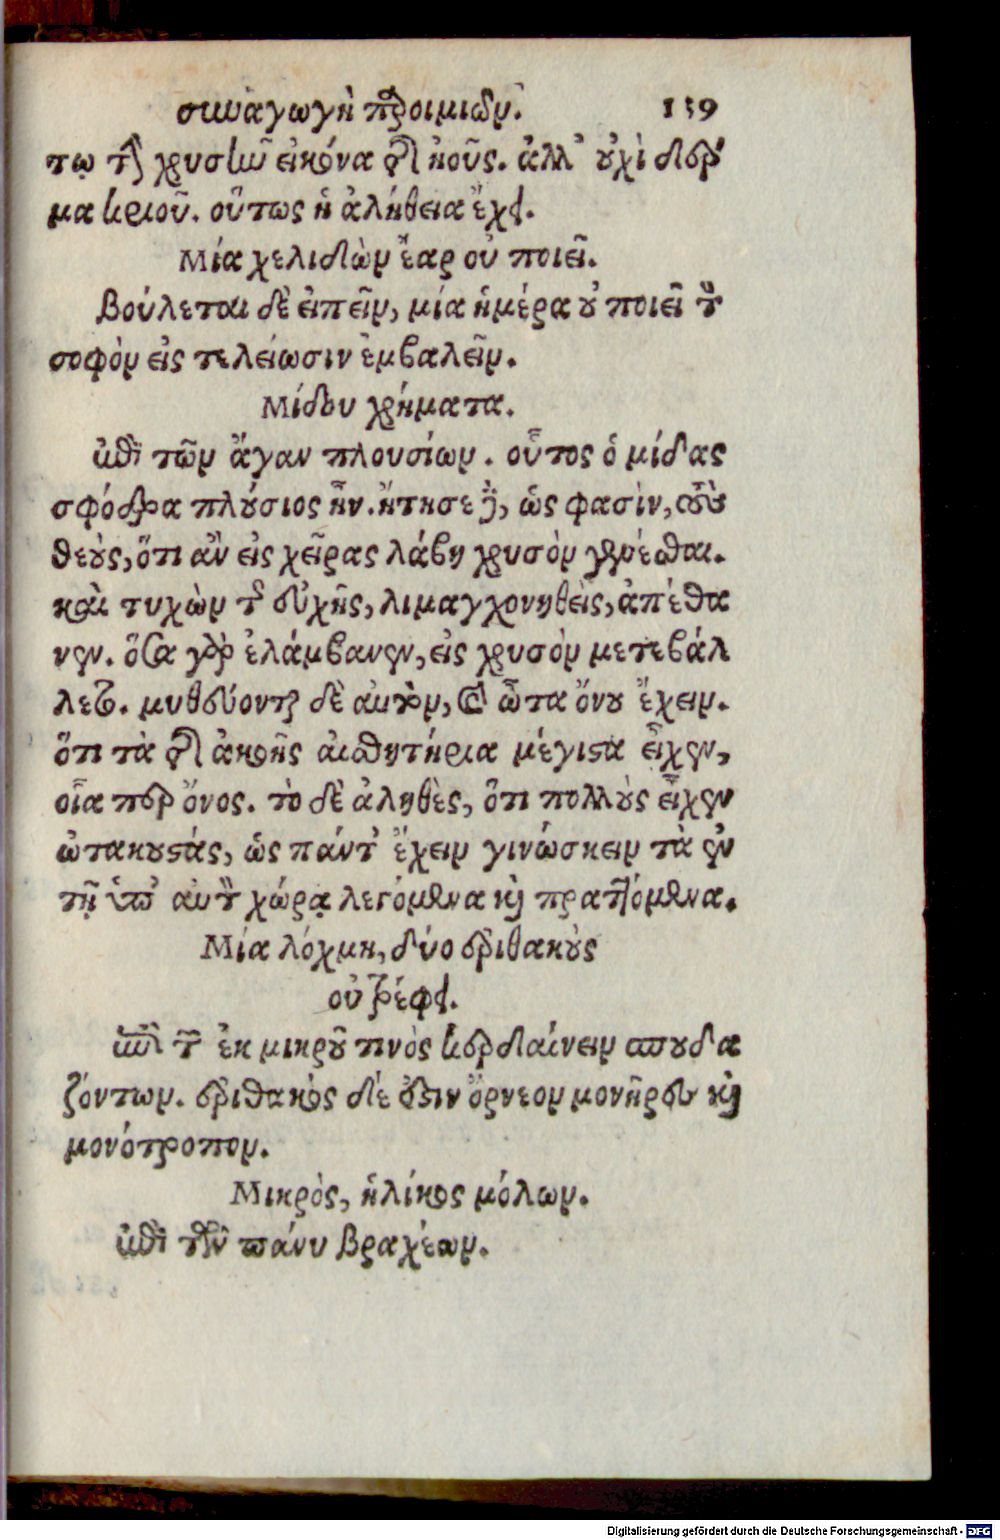 συναγωγὴ παροιμιῶν. 159
τῳ τὴν χρυσῆν εἰκόνα τῆς κοῦς. ἀλλ' οὐχὶ δέρ
μα κριοῦ. οὕτως ἡ ἀλήθεια ἔχει.
Μία χελιδὼν ἔαρ οὐ ποιεῖ.
βούλεται δὲ εἰπεῖν, μία ἡμέρα οὐ ποιεῖ τὸν
σοφὸν εἰς τελείωσιν ἐμβαλεῖν.
Μίδου χρήματα.
ἐπὶ τῶν ἄγαν πλουσίων. οὗτος ὁ μίδας
σφόδρα πλούσιος ἦν. ᾔτησε γὰρ, ὡς φασὶν, τοὺς
θεοὺς, ὅτι ἂν εἰς χεῖρας λάβῃ χρυσὸν γενέσθαι.
καὶ τυχὼν τῆς εὐχῆς, λιμαγχονηθεὶς, ἀπέθα
νεν. ὅσα γὰρ ἐλάμβανεν, εἰς χρυσὸν μετεβάλ
λετο. μυθεύονται δὲ αὐτὸν, καὶ ὦτα ὄνου ἔχειν.
ὅτι τὰ τῆς ἀκοῆς αἰσθητήρια μέγιστα εἶχεν,
οἷα περ ὄνος. τὸ δὲ ἀληθὲς, ὅτι πολλοὺς εἶχεν
ὠτακουστάς, ὡς πάντα ἔχειν γινώσκειν τὰ ἐν
τῇ ὑπ' αὐτὸν χώρᾳ λεγόμενα καὶ πραττόμενα.
Μία λόχμη, δύο ἐριθακοὺς
οὐ τρέφει.
ἐπὶ τῶν ἐκ μικροῦ τινὸς κερδαίνειν σπουδα
ζόντων. ἐριθακός δέ ἐστιν ὄρνεον μονῆρες καὶ
μονότροπον.
Μικρὸς, ἡλίκος μόλων.
ἐπὶ τῶν πάνυ βραχέων.
Digitalisierung gefördert durch die Deutsche Forschungsgemeinschaft - DFG